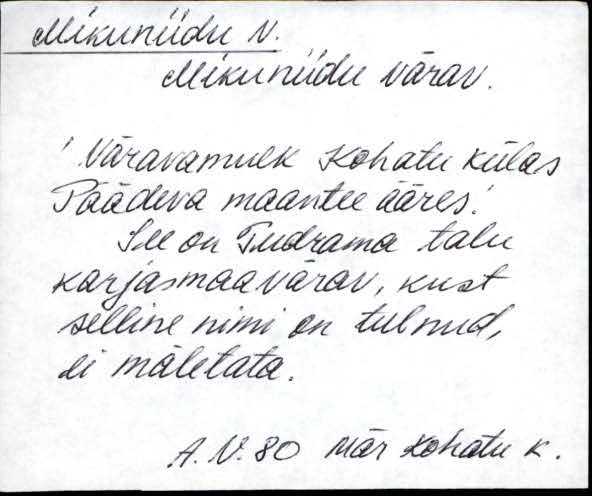 Mikuniidu V.
Mikuniidu värav.
' Väravamulk Kohatu külas
Päädeva maantee ääres.'
See on Tudrama talu
karjasmaavärav, kust
selline nimi on tulnud,
ei mäletata.
A.V. 80 Mär Kohatu k.